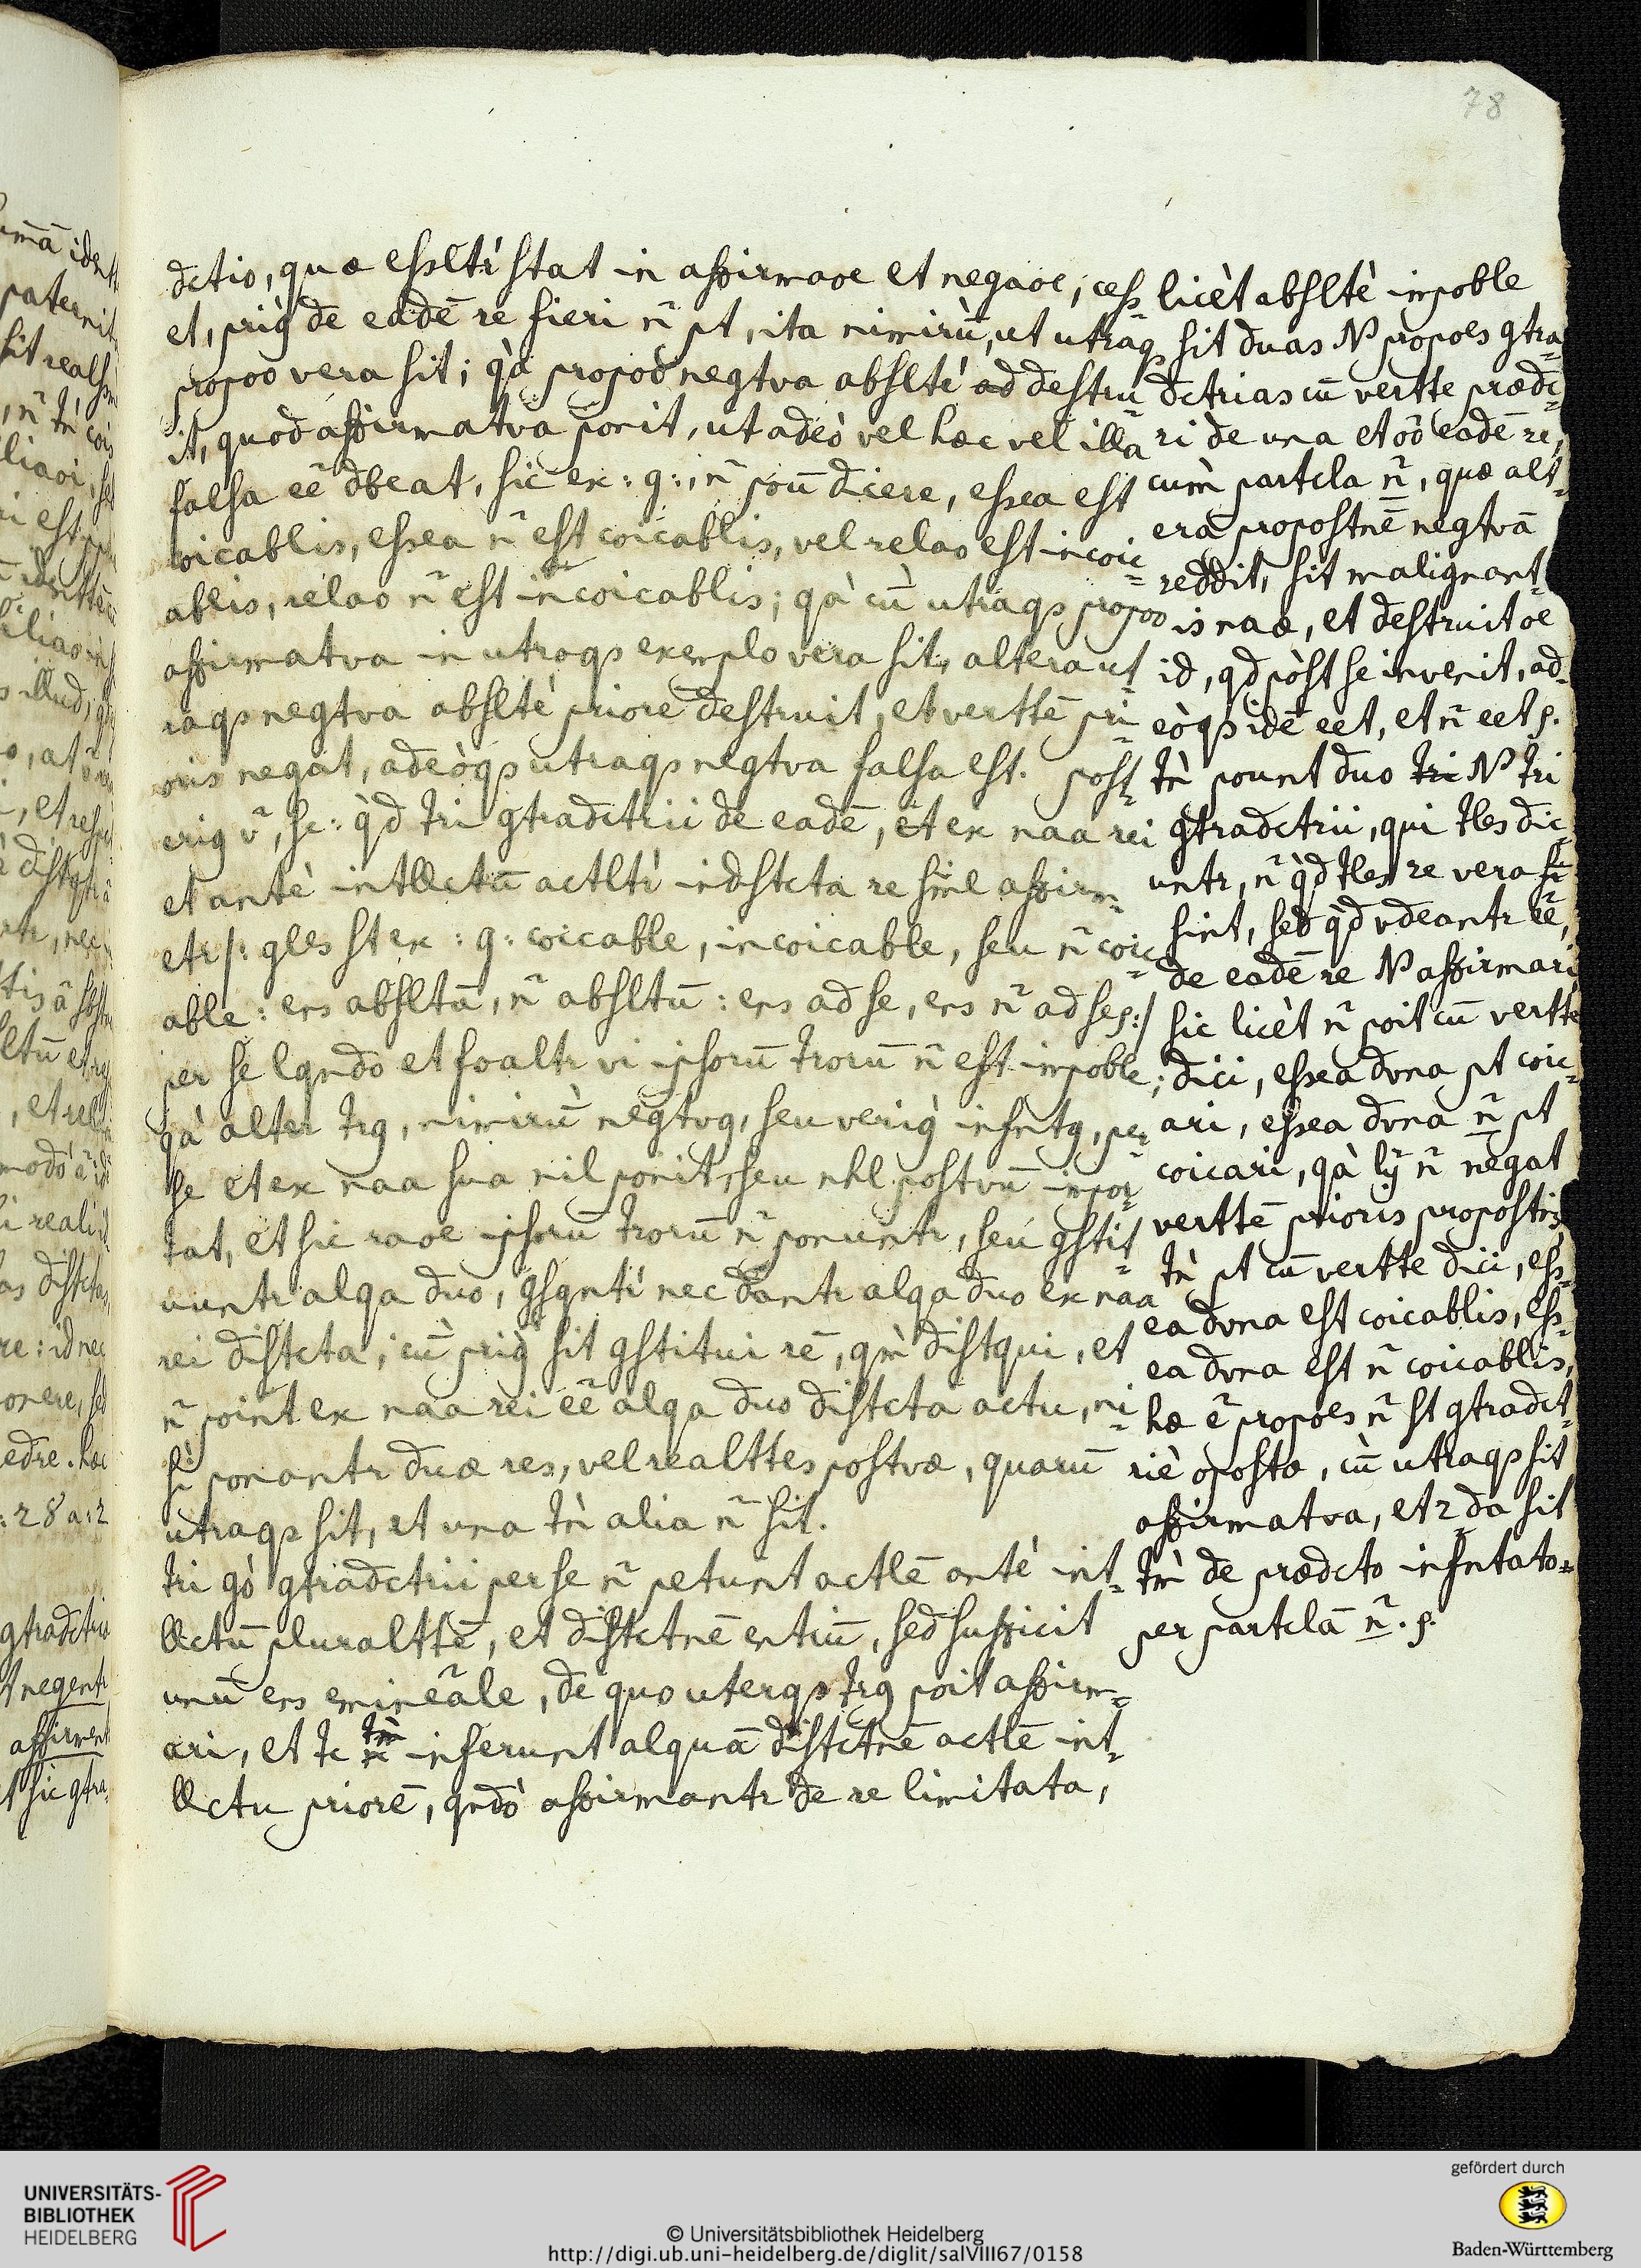 78
dctio, quæ essltr stat in affirmaoe et negaoe,
et, priq de eadē re fieri n̄ pt, ita nimirù, ut utraqs
propoo vera sit; qà propoo negtva absltè ad destru
it, quod affirmatva ponit, ut adeò vel hæc vel illa
falsa eē dbeat, sic ex: g:, n̄ poū dicere, essea est
coicablis, essea n̄ est coicablis, vel relao est incoic=
ablis, relao n̄ est incoicablis; qà cù utraqs propoo
affirmatva in utroqs exemplo vera sit, altera ut=
raqs negtva absltè priore destruit, et verttē pri=
oris negat, adeòqs utraqs negtva falsa est. post=
eriq v̄, sc: qd tri gtradctrii de eadē, et ex naa rei
et antè intllctū actltr indstcta re siml affirm=
etr /: qles st ex: g: coicable, incoicable, seu n̄ coic=
able: ens absltū, n̄ absltū: ens ad se, ens n̄ ad se p:/
per se lqndo et foaltr vi ipsorū trorū n̄ est impoble;
qà alter trq, nimirù negtvq, seu veriq infntq, per
se et ex naa sua nil ponit, seu nhl postvū impor=
tat, et sic raoe ipsorū trorū n̄ ponuntr, seu gstit=
uuntr alqa duo, gsqntr nec dantr alqa duo ex naa
rei distcta; cù priq sit gstitui rē, qm̀ distqui, et
n̄ point ex naa rei eē alqa duo distcta actu, ni=
si ponantr duæ res, vel realttes postvæ, quarū
utraqs sit, et una tǹ alia n̄ sit.
tri gò gtradctrii per se n̄ petunt actlē antè int=
llctū pluralttē, et distctnē entiū, sed sufficit
unū ens emineāle, de quo uterqs trq poit affirm=
ari, et tc tm̀ inferunt alquā distctnē actlē int=
llctu priorē, qndò affirmantr de re limitata,
cess licèt absltè impoble
sit duas N propoes gtra=
dctrias cū vertte prædc=
ri de una et oō eadē re,
cùm partcla n̄, quæ alt=
era propostnē negtvā
reddit, sit malignant=
is naæ, et destruit oe
id, qd pòst se invenit, ad=
eòqs idē eet, et n̄ eet p.
tǹ pount duo tri N tri
gtradctrii, qui tles dic=
untr, n̄ qd tles re vera si
sint, sed qd vdeantr eē,
de eadē re N affirmari
sic licèt n̄ poit cū vertte
dici, essea dvna pt coic=
ari, essea dvna n̄ pt
coicari, qà lȳ n̄ negat
verttē prioris propostnis
tǹ pt cū vertte dici, ess=
ea dvna est coicablis, ess=
ea dvna est n̄ coicablis,
hæ ē propoes n̄ st gtradct=
riè oposta, cù utraqs sit
affirmatva, et 2da sit
tm̀ de prædcto infntato=
per partclā n̄. p.
UNIVERSITÄTS-
BIBLIOTHEK
HEIDELBERG
© Universitätsbibliothek Heidelberg
http://digi.ub.uni-heidelberg.de/diglit/salVIII67/0158
gefördert durch
Baden-Württemberg